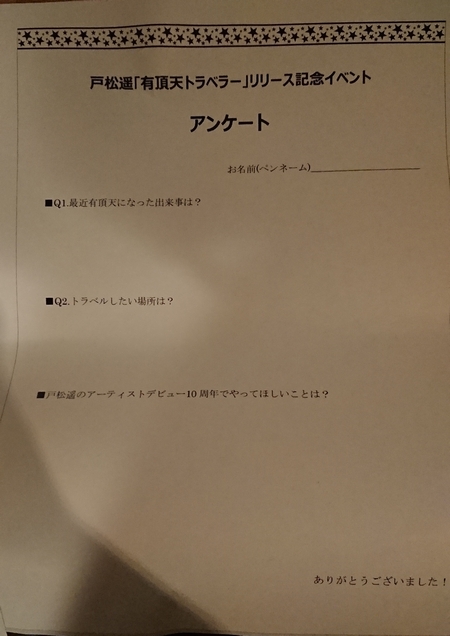 戸松遥「有頂天トラベラー」リリース記念イベント
アンケート
お名前(ペンネーム)____________________
■Q1.最近有頂天になった出来事は？
■Q2.トラベルしたい場所は？
■戸松遥のアーティストデビュー10周年でやってほしいことは？
ありがとうございました！